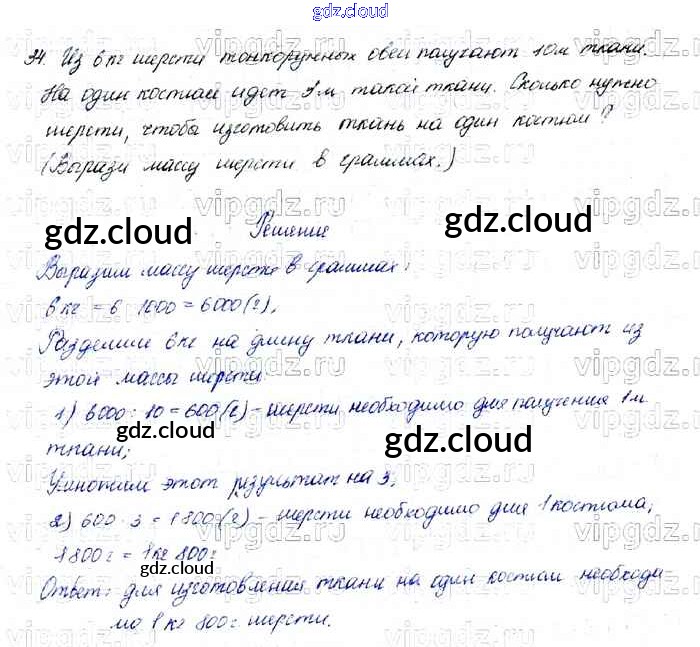 gdz.cloud
34. Из 6 кг шерсти тонкорунных овец получают 10 м ткани.
На один костюм идет 3 м такой ткани. Сколько нужно
шерсти, чтобы изготовить ткань на один костюм?
(Вырази массу шерсти в граммах.)
gdz.cloud gdz.cloud
Решение
Выразим массу шерсти в граммах:
6 кг = 6 · 1000 = 6000 (г),
Разделим 6 кг на длину ткани, которую получают из
этой массы шерсти:
1) 6000 : 10 = 600 (г) - шерсти необходимо для получения 1 м
ткани;
gdz.cloud gdz.cloud
Умножим этот результат на 3,
2) 600 · 3 = 1800 (г) - шерсти необходимо для 1 костюма,
1800 г = 1 кг 800 г
gdz.cloud
Ответ: для изготовления ткани на один костюм необходи
мо 1 кг 800 г шерсти.
vipgdz.ru